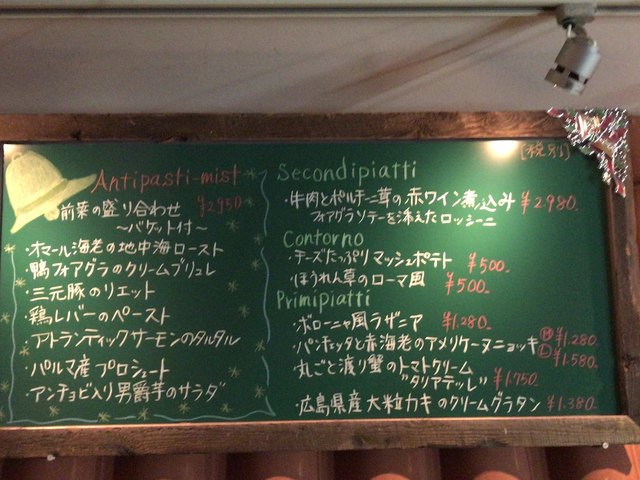 Antipasti-mist
前菜の盛り合わせ ¥2950
～バケット付～
・オマール海老の地中海ロースト
・鴨フォアグラのクリームブリュレ
・三元豚のリエット
・鶏レバーのペースト
・アトランティックサーモンのタルタル
・パルマ産プロシュート
・アンチョビ入り男爵芋のサラダ
[税別]
Secondipiatti
・牛肉とポルチーニ茸の赤ワイン煮込み ¥2.980.
フォアグラソテーを添えたロッシーニ
Contorno
・チーズたっぷりマッシュポテト ¥500.
・ほうれん草のローマ風 ¥500.
Primipiatti
・ボローニャ風ラザニア ¥1.280.
・パンチェッタと赤海老のアメリケーヌニョッキ Ⓜ ¥1.280
Ⓛ ¥1.580.
・丸ごと渡り蟹のトマトクリーム
"タリアテッレ" ¥1.750
・広島県産大粒カキのクリームグラタン ¥1.380.